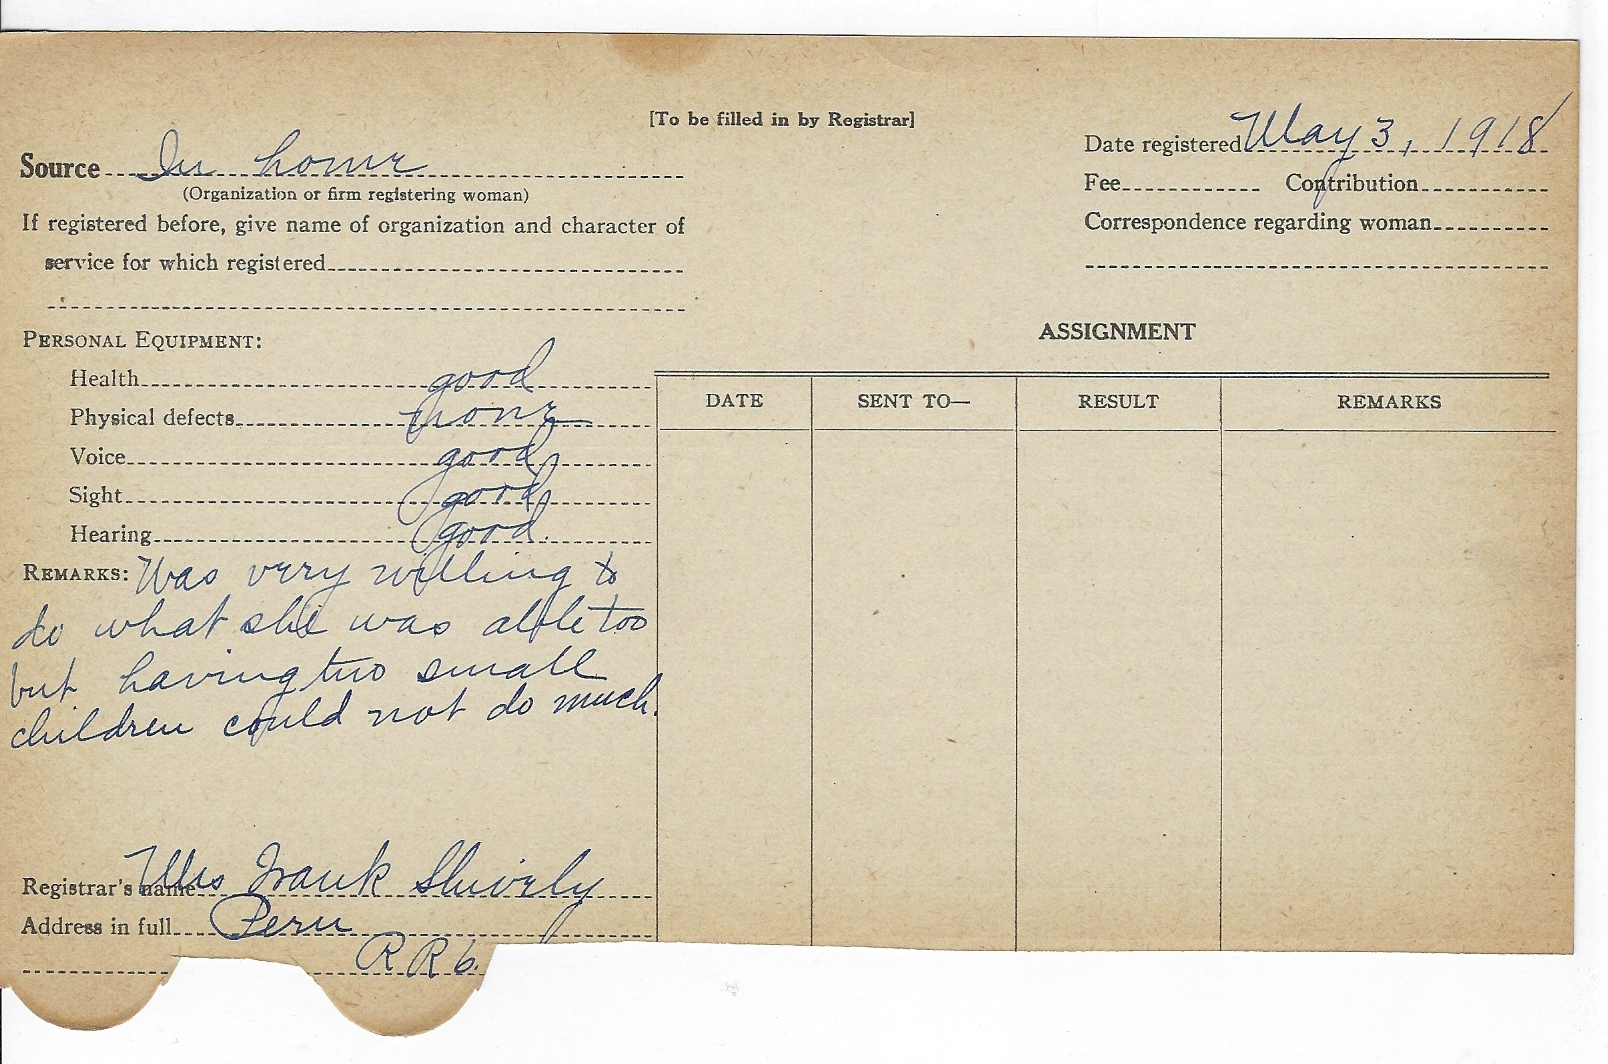 [To be filled in by Registrar]
Source In home
(Organization or firm registering woman)
If registered before, give name of organization and character of
service for which registered
Date registered May 3, 1918
Fee Contribution
Correspondence regarding woman
PERSONAL EQUIPMENT:
Health good
Physical defects none
Voice good
Sight good
Hearing good.
REMARKS: Was very willing to
do what she was able too
but having two small
children could not do much.
Registrar's name Mrs Frank Shively
Address in full Peru
R R 6.
ASSIGNMENT
DATE SENT TO— RESULT REMARKS